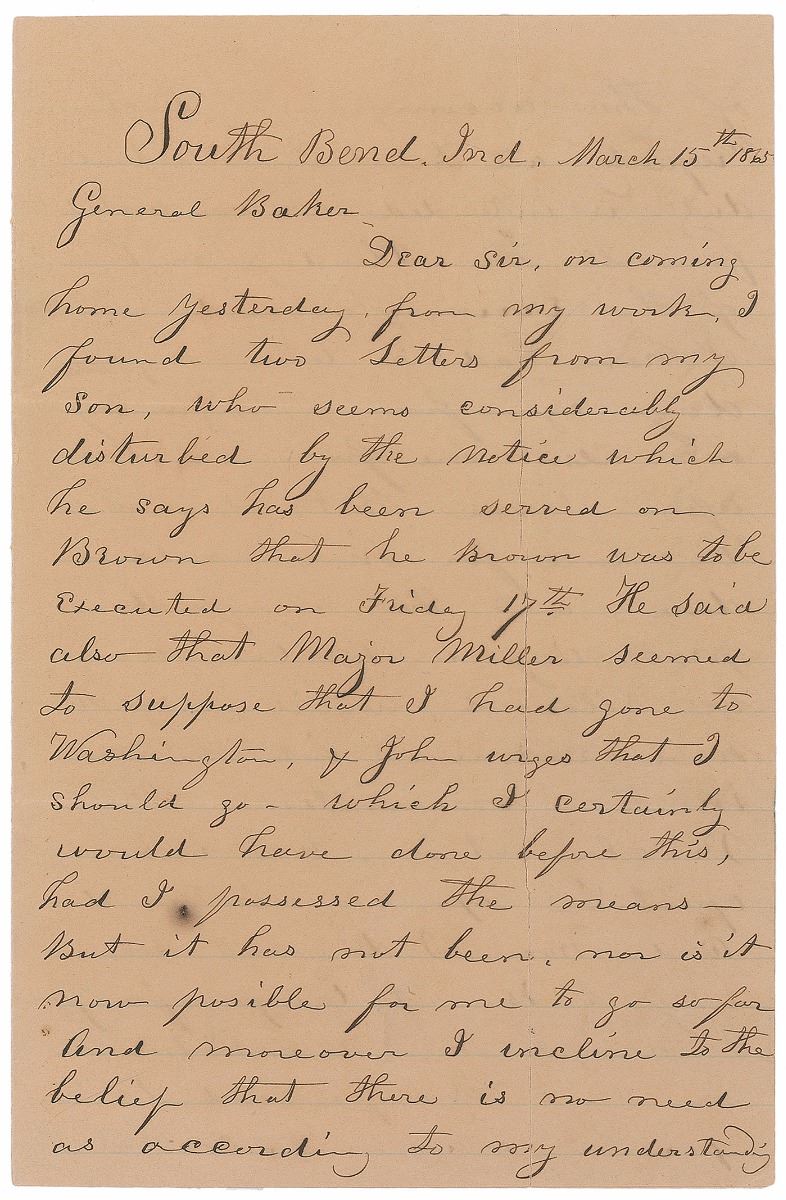 South Bend. Ind. March 15th 1865
General Baker
Dear Sir, on coming
home yesterday, from my work, I
found two Letters from my
son, who seems considerably
disturbed by the notice which
he says has been served on
Brown that he Brown was to be
Executed on Friday 17th He said
also that Major Miller seemed
to suppose that I had gone to
Washington, & John urges that I
should go - which I certainly
would have done before this,
had I possessed the means -
But it has not been, nor is it
now posible for me to go so far
And moreover I incline to the
belief that there is no need
as according to my understanding